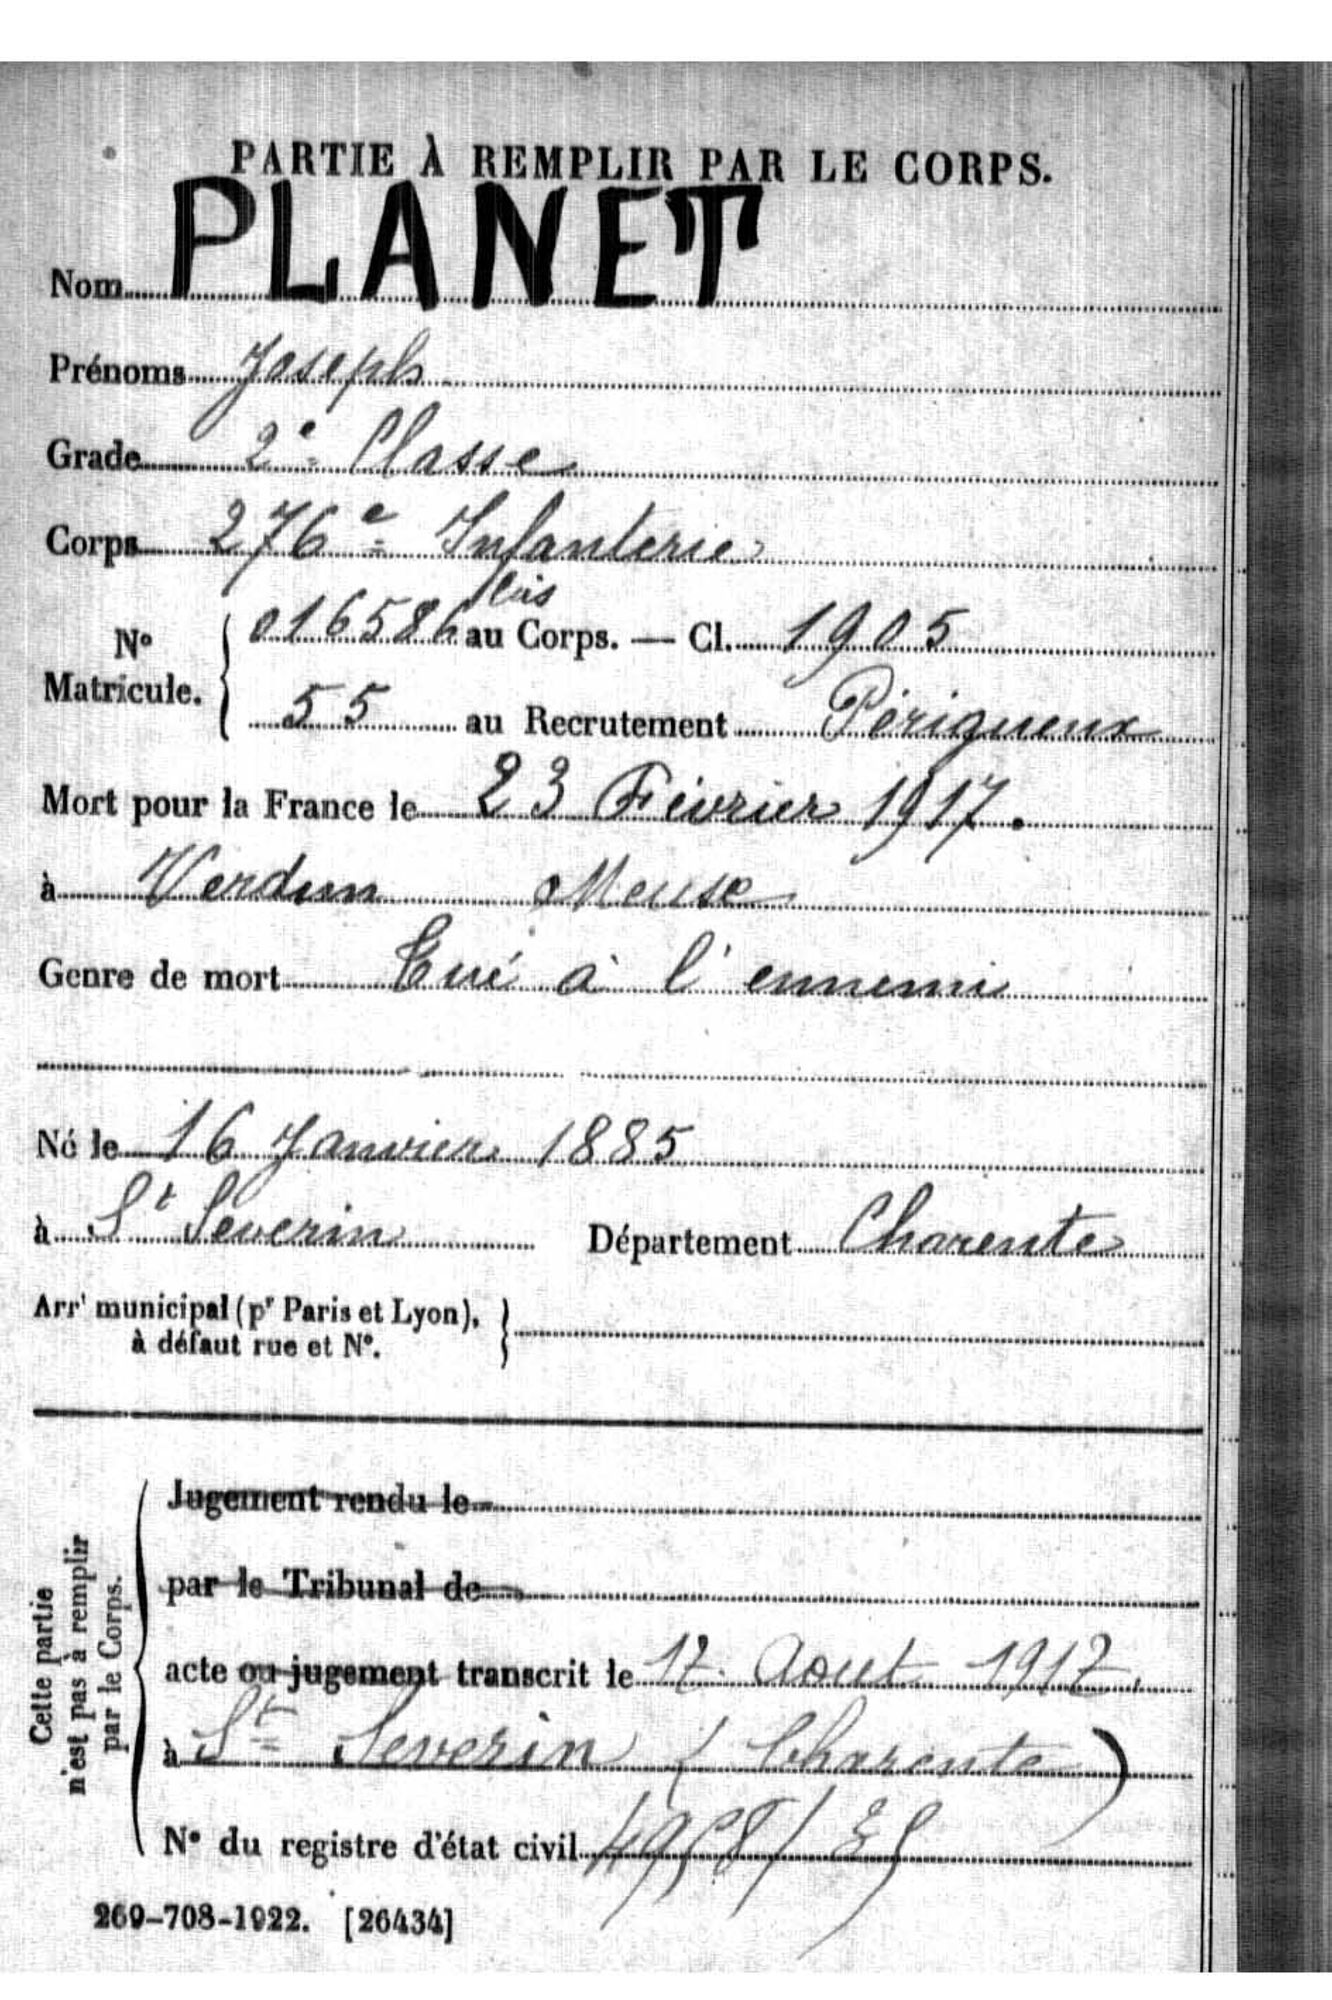 PARTIE À REMPLIR PAR LE CORPS.
Nom PLANET
Prénoms Joseph
Grade 2e Classe
Corps 276e Infanterie
bis
No Matricule. { 016586 au Corps. — Cl. 1905
55 au Recrutement Périgueux
Mort pour la France le 23 Février 1917.
à Verdun Meuse
Genre de mort Tué à l'ennemi
Né le 16 Janvier 1885
à St Séverin Département Charente
Arrt municipal (pr Paris et Lyon), }
à défaut rue et No.
Cette partie
n'est pas à remplir
par le Corps.
Jugement rendu le
par le Tribunal de
acte ou jugement transcrit le 17 Aout 1917.
à St Severin (Charente)
No du registre d'état civil
269-708-1922. [26434]